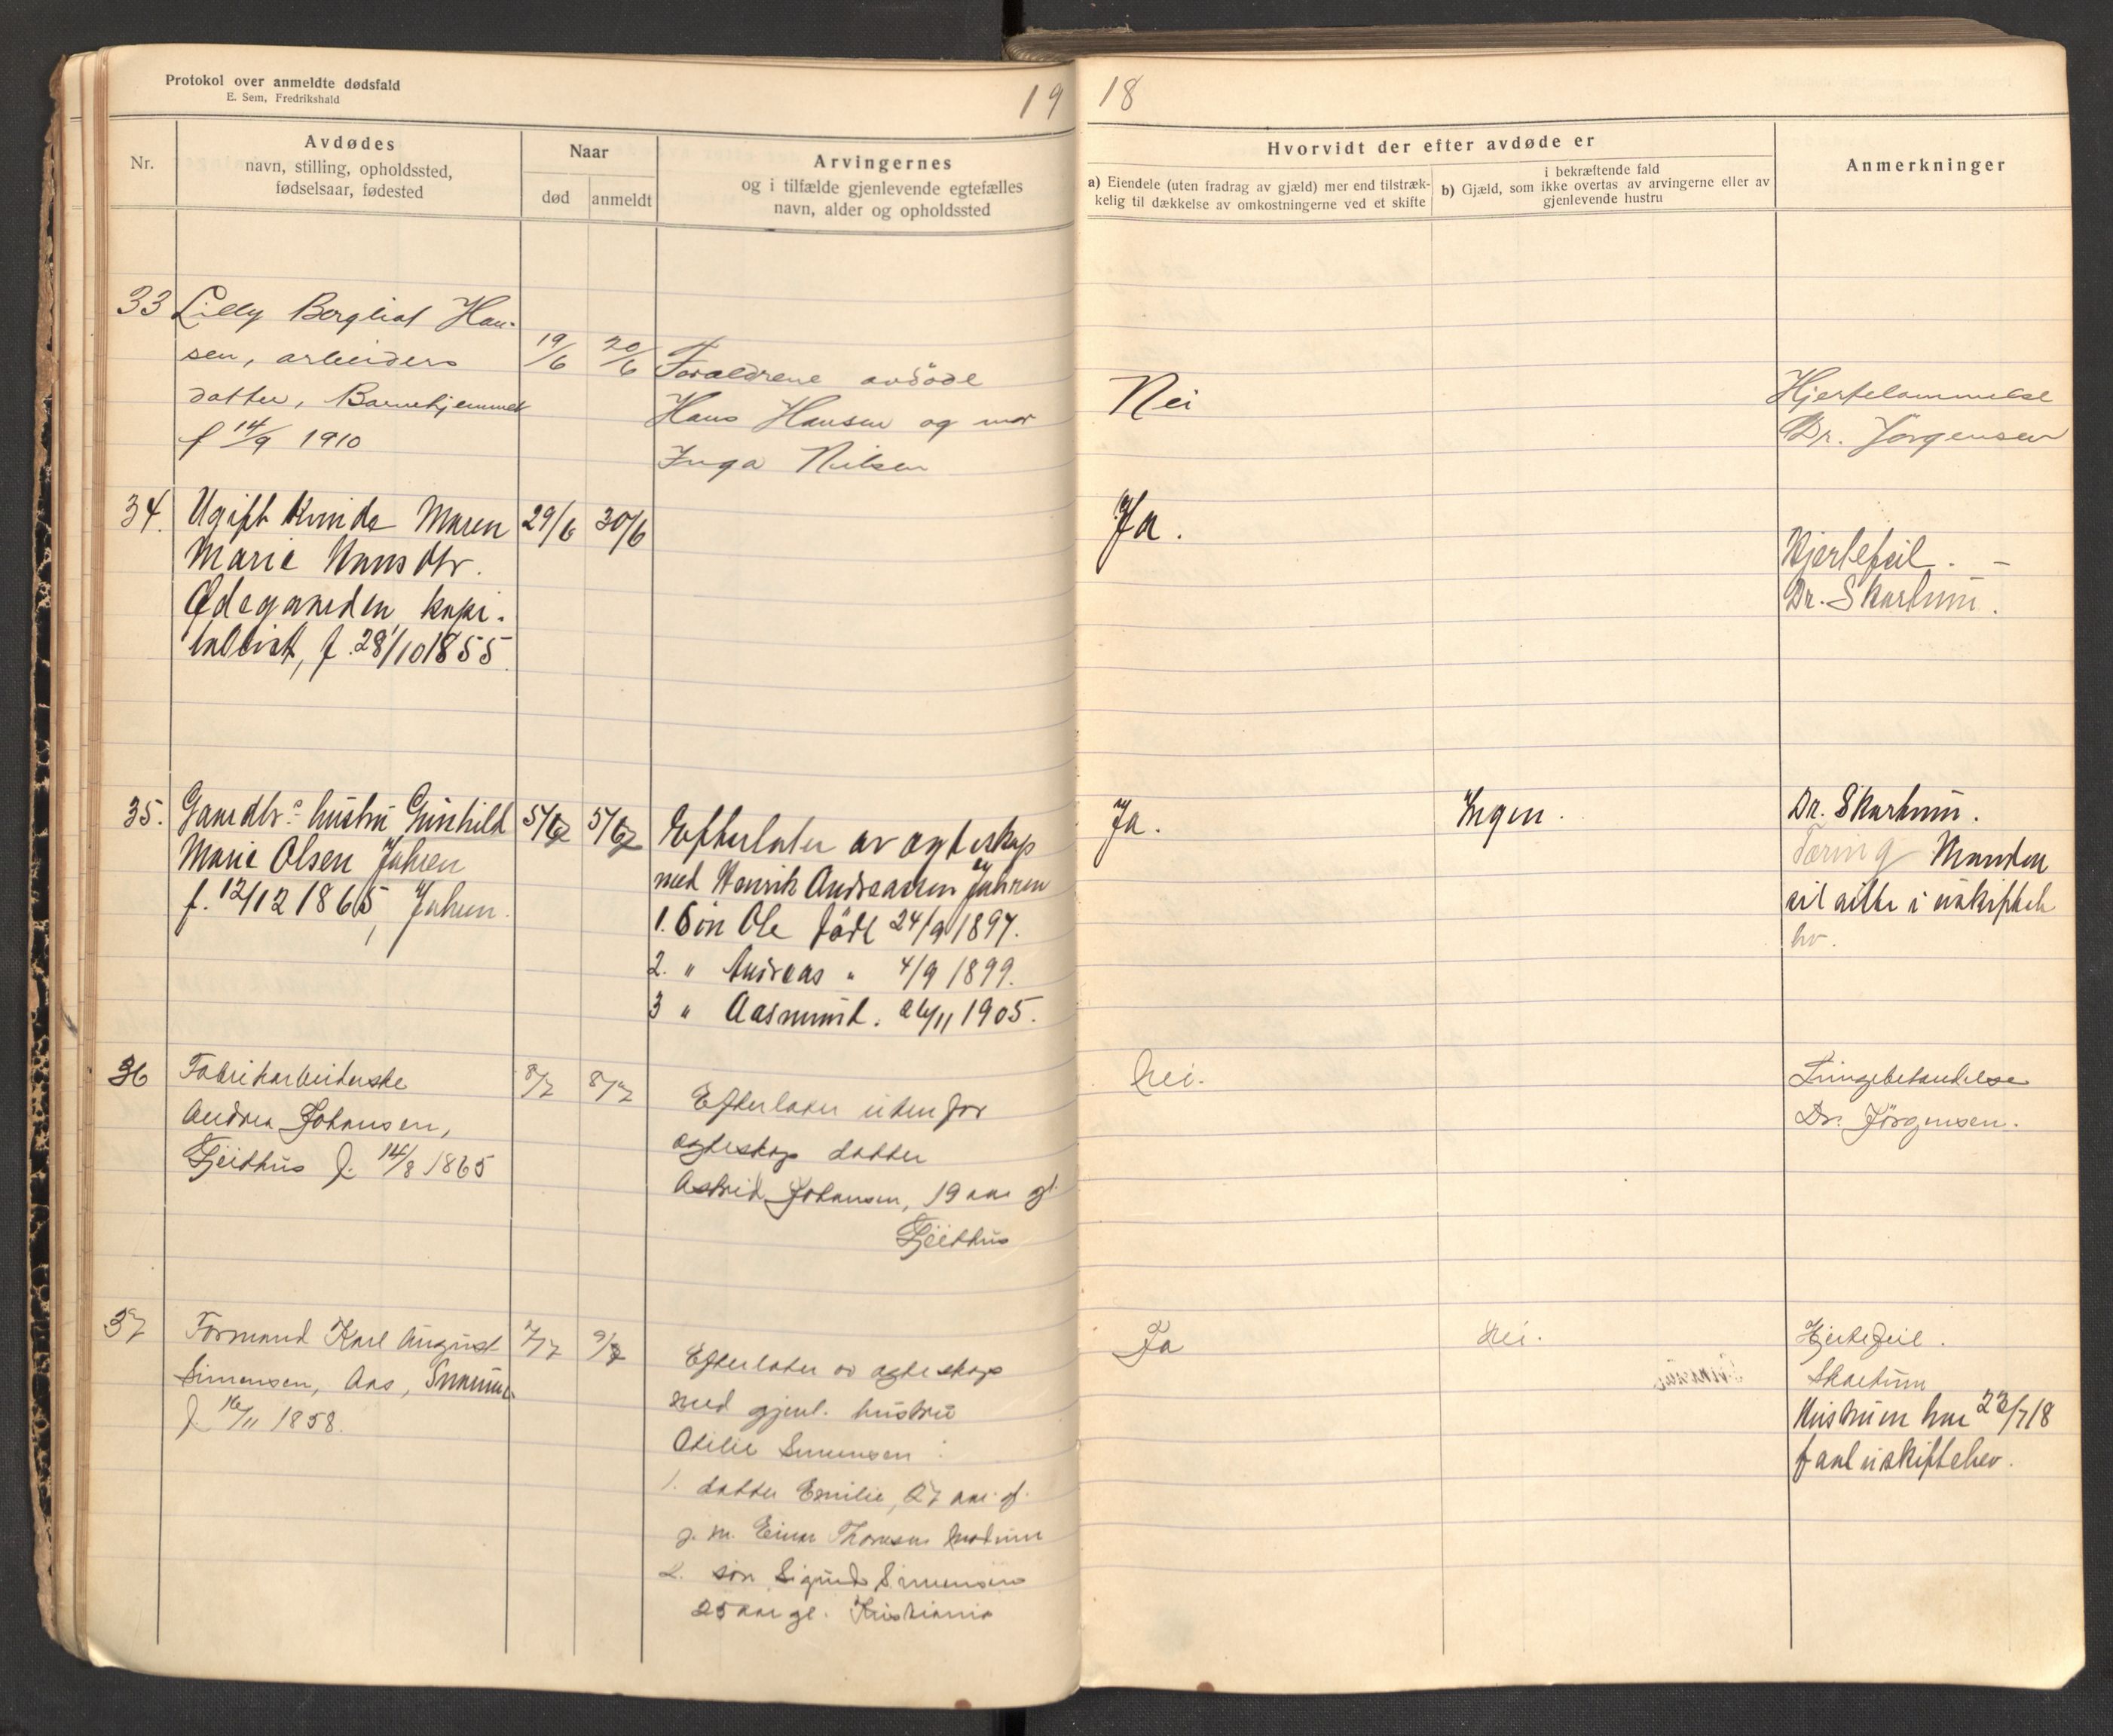 Protokol over anmeldte dødsfald
E. Sem, Fredrikshald
19 18
Nr.
Avdødes
navn, stilling, opholdssted,
fødselsaar, fødested
Naar
død
anmeldt
Arvingernes
og i tilfælde gjenlevende egtefælles
navn, alder og opholdssted
Hvorvidt der efter avdøde er
a) Eiendele (uten fradrag av gjæld) mer end tilstræk-
kelig til dækkelse av omkostningerne ved et skifte
i bekræftende fald
b) Gjæld, som ikke overtas av arvingerne eller av
gjenlevende hustru
Anmerkninger
33 Lilly Bergliot Han-
sen, arbeiders
datter, Barnehjemmet
f 14/9 1910
19/6
20/6
Foraldrene avdöde
Hans Hansen og mor
Inga Nilsen
Nei
Hjertelammelse
Dr. Jörgensen
34. Ugift kvinde Maren
Marie Hansdtr.
Ødegaarden, kapi-
talist, f. 28/10 1855.
29/6
30/6
Ja.
Hjertefeil. -
Dr. Skartum.
35. Gaardbr.s hustru Gunhild
Marie Olsen Jahren
f. 12/12 1865, Jahren.
5/7
5/7
Efterlater av ægteskap
med Henrik Andreassen Jahren
1. Sön Ole född 24/9 1897.
2. " Andreas " 4/9 1899.
3 " Aasmund. 26/11 1905.
Ja.
Ingen.
Dr. Skartum.
Tæring Manden
vil sitte i uskiftet
bo.
36 Fabrikarbeiderske
Andrea Johansen,
Gjeithus f. 14/8 1865
8/7
8/7
Efterlater utenfor
ægteskap datter
Astrid Johansen, 19 aar gl.
Gjeithus
Nei.
Lungebetændelse
Dr. Jörgensen.
37 Formand Karl August
Simensen, Aas,
f. 16/11 1858.
7/7
9/7
Efterlater av ægteskap
med gjenl. hustru
Otilie Simensen:
1. datter Emilie, 27 aar gl.
g. m. Einar Thoresen Modum
2. sön Sigurd Simensen
25 aar gl. Kristiania
Ja
Nei.
Hjertefeil.
Skartum
Hustruen har 23/7 18
faat uskiftebev.